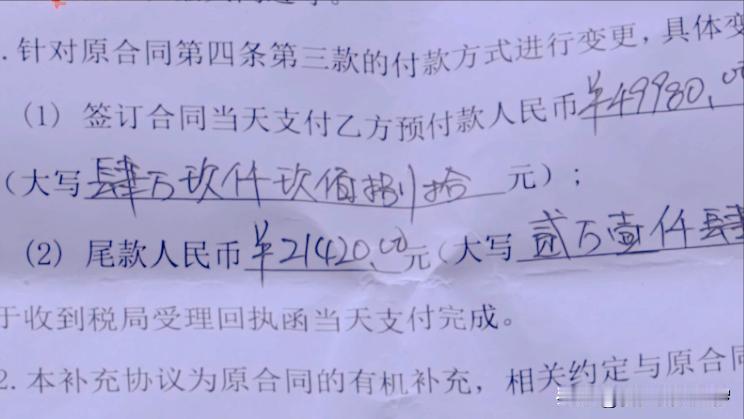 .针对原合同第四条第三款的付款方式进行变更，具体变
(1) 签订合同当天支付乙方预付款人民币¥49980.00
(大写肆万玖仟玖佰捌拾 元)；
(2) 尾款人民币¥21420.00元(大写 贰万壹仟肆
于收到税局受理回执函当天支付完成。
2.本补充协议为原合同的有机补充，相关约定与原合同